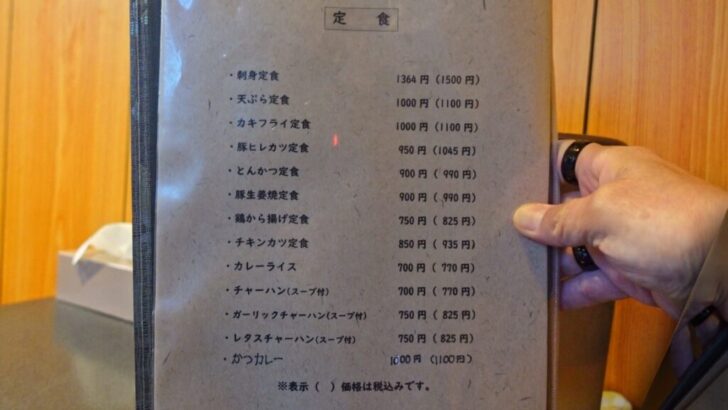 定食
・刺身定食 1364円(1500円)
・天ぷら定食 1000円(1100円)
・カキフライ定食 1000円(1100円)
・豚ヒレカツ定食 950円(1045円)
・とんかつ定食 900円( 990円)
・豚生姜焼定食 900円( 990円)
・鶏から揚げ定食 750円( 825円)
・チキンカツ定食 850円( 935円)
・カレーライス 700円( 770円)
・チャーハン(スープ付) 700円( 770円)
・ガーリックチャーハン(スープ付) 750円( 825円)
・レタスチャーハン(スープ付) 750円( 825円)
・かつカレー 1000円(1100円)
※表示( )価格は税込みです。